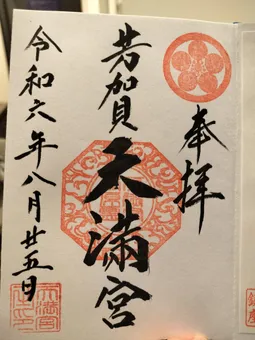 奉拝
芳加貝
天満宮
令和六年八月廿五日